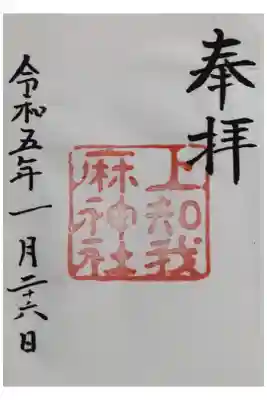 奉拝
上知我
麻神社
令和五年一月二十六日